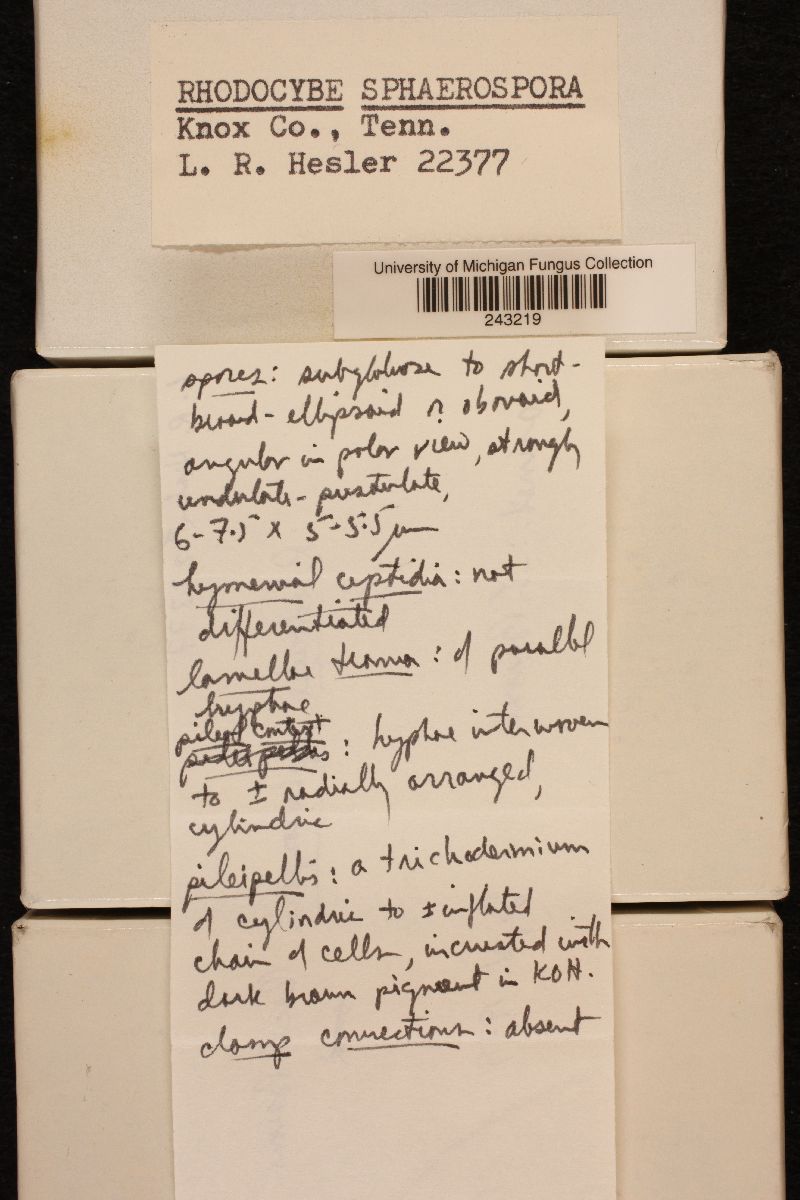 RHODOCYBE SPHAEROSPORA
Knox Co., Tenn.
L. R. Hesler 22377
University of Michigan Fungus Collection
243219
spores: subglobose to short-
broad-ellipsoid or obovoid,
angular in polar view, strongly
undulate-pustulate,
6-7.5 x 5-5.5 µm
hymenial cystidia: not
differentiated
lamellae trama: of parallel
hyphae
pileal context
: hyphae interwoven
to ± radially arranged,
cylindric
pileipellis: a trichodermium
of cylindric to ± inflated
chain of cells, incrusted with
dark brown pigment in KOH.
clamp connections: absent